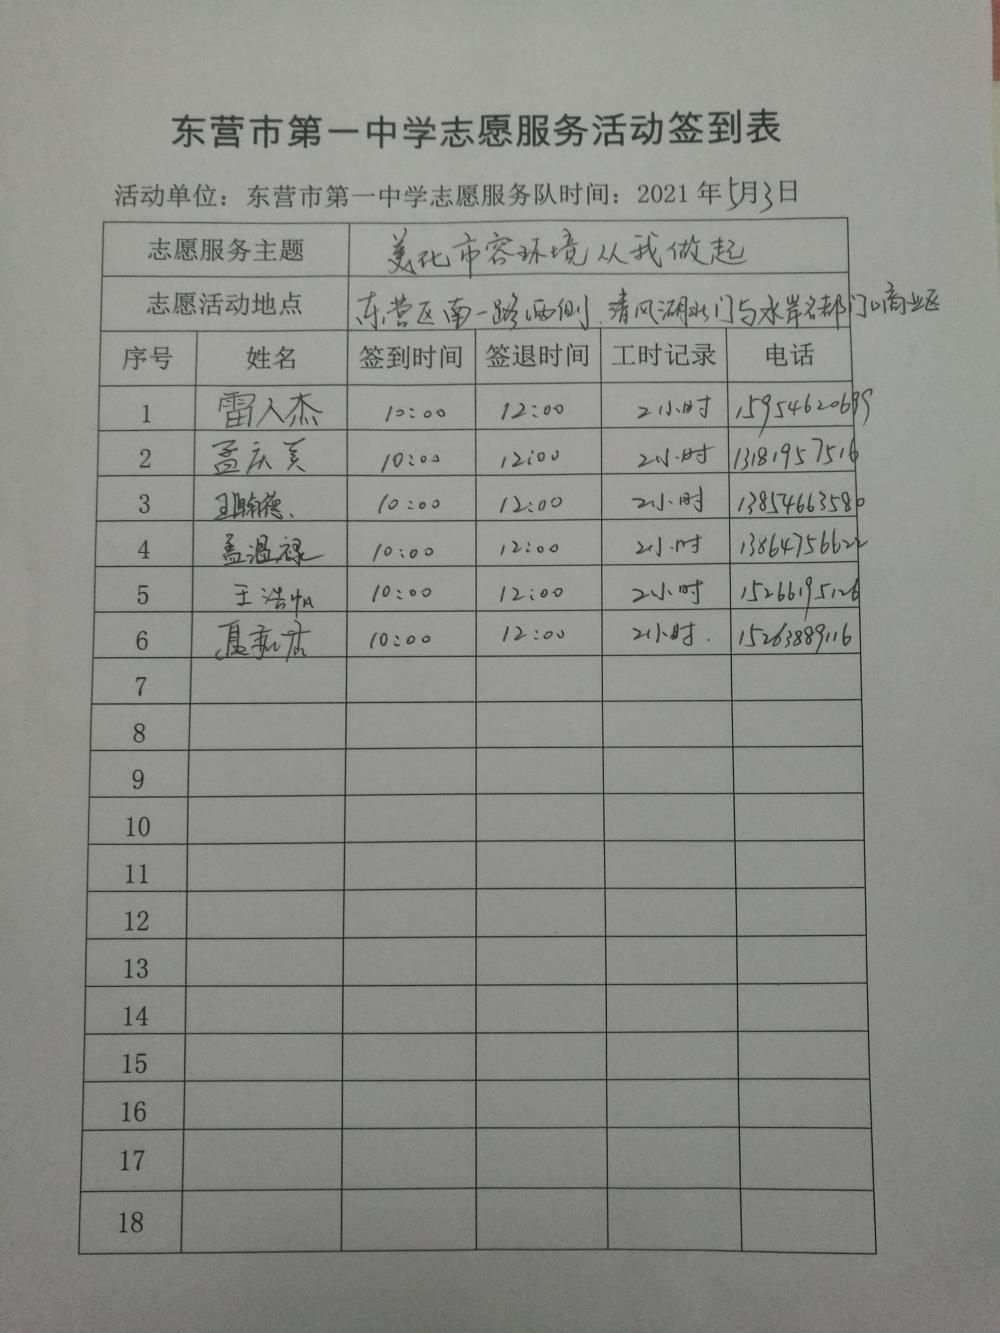 东营市第一中学志愿服务活动签到表
活动单位：东营市第一中学志愿服务队时间：2021年5月3日
志愿服务主题 美化市容环境从我做起
志愿活动地点 东营区南一路西侧、清风湖北门与水岸名都门口商业区
序号 姓名 签到时间 签退时间 工时记录 电话
1 雷人杰 10:00 12:00 2小时 15954620699
2 孟庆美 10:00 12:00 2小时 13181957516
3 王翰德、 10:00 12:00 2小时 13854663580
4 孟温禄 10:00 12:00 2小时 13864756622
5 王浩帆 10:00 12:00 2小时 15266195126
6 夏 10:00 12:00 2小时. 15263889116
7
8
9
10
11
12
13
14
15
16
17
18